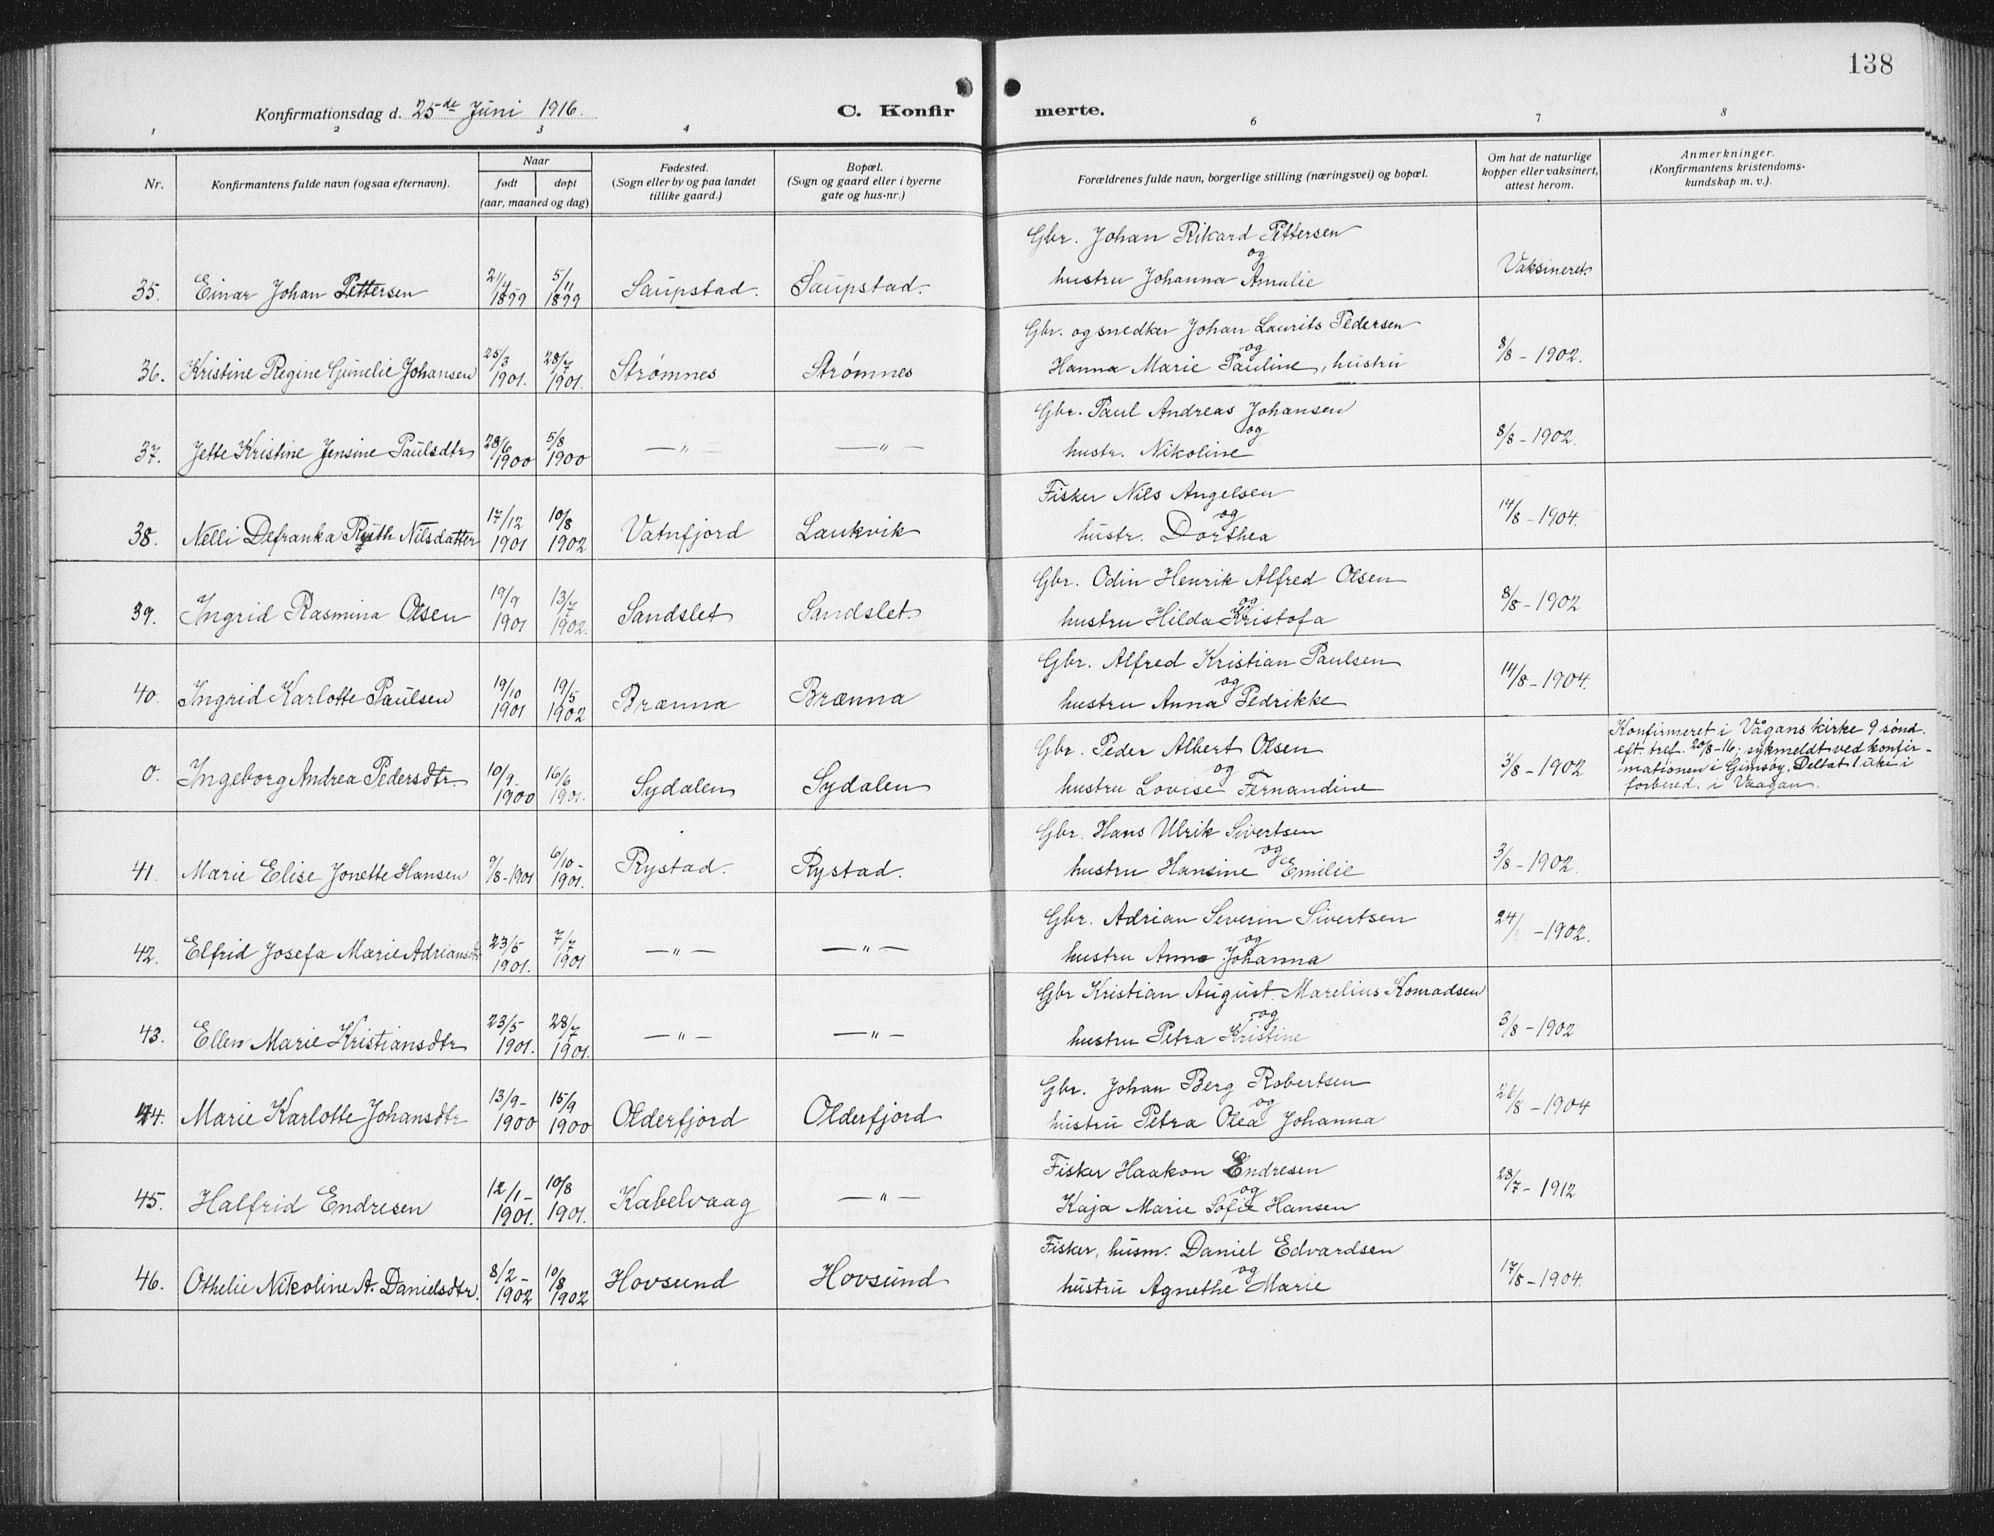 138
Konfirmationsdag d. 25de Juni 1916.
C. Konfirmerte.
1 2 3 4 6 7 8
Nr.
Konfirmantens fulde navn (ogsaa efternavn).
Naar
født
døpt
(aar, maaned og dag)
Fødested.
(Sogn eller by og paa landet
tillike gaard.)
Bopæl.
(Sogn og gaard eller i byerne
gate og hus-nr.)
Forældrenes fulde navn, borgerlige stilling (næringsvei) og bopæl.
Om hat de naturlige
kopper eller vaksinert,
attest herom.
Anmerkninger.
(Konfirmantens kristendoms-
kundskap m. v.).
Gbr. Johan Rikard Pettersen
og
35. Einar Johan Pettersen 21/4 1899 5/11 1899 Saupstad. Saupstad. hustru Johanna Amalie Vaksineret.
Gbr. og snedker Johan Laurits Pedersen
og
36. Kristine Regine Gunelie Johansen 25/3 1901. 28/7 1901. Strømnes Strømnes Hanna Marie Pauline, hustru 8/8 - 1902.
Gbr. Paul Andreas Johansen
og
37. Jette Kristine Jensine Paulsdtr 28/6 1900 5/8 1900 — " — — " — hustr. Nikoline 8/8 - 1902.
Fisker Nils Angelsen
og
38. Nelli Defranka Ruth Nilsdatter 17/12 1901 10/8 1902 Vatnfjord Laukvik hustr. Dorthea 14/8 - 1904.
Gbr. Odin Henrik Alfred Olsen
og
39. Ingrid Rasmina Olsen 19/9 1901 13/7 1902. Sandslet Sandslet. hustru Hilda Kristofa 8/8 - 1902
Gbr. Alfred Kristian Paulsen
og
40. Ingrid Karlotte Paulsen 19/10 1901 19/5 1902 Brænna Brænna hustru Anna Pedrikke 14/8 - 1904.
Gbr. Peder Albert Olsen
og
0. Ingeborg Andrea Pedersdtr. 10/9 1900 16/6 1901. Sydalen Sydalen hustru Lovise Fernandine 3/8 - 1902
Konfirmeret i Vågans kirke 9 sønd.
eft. tref. 20/8-16; sykmeldt ved konfir-
mationen i Gimsøy. Deltat 1 uke i
forbered. i Vaagan.
Gbr. Hans Ulrik Sivertsen
og
41. Marie Elise Jonette Hansen 9/8 - 1901 6/10 - 1901. Rystad. Rystad. hustru Hansine Emilie 3/8 - 1902.
Gbr. Adrian Severin Sivertsen
og
42. Elfrid Josefa Marie Adriansdt 23/5 1901. 7/7 1901 — " — — " — hustru Anna Johanna 24/ - 1902.
Gbr Kristian August Marelius Konradsen
og
43. Ellen Marie Kristiansdtr 23/5 1901. 28/7 1901. — " — — " — hustru Petra Kristine 3/8 - 1902
Gbr. Johan Berg Robertsen
og
44. Marie Karlotte Johansdtr 13/9 - 1900 15/9 1900 Olderfjord Olderfjord hustru Petra Olea Johanna 26/8 - 1904
Fisker Haakon Endresen
og
45. Halfrid Endresen 12/1 - 1901. 10/8 1901. Kabelvaag — " — Kaja Marie Sofie Hansen 28/7 - 1912
Fisker, husm. Daniel Edvardsen
og
46. Othelie Nikoline A. Danielsdtr. 8/2 - 1902 10/8 1902 Hovsund Hovsund hustru Agnethe Marie 17/8 - 1904.